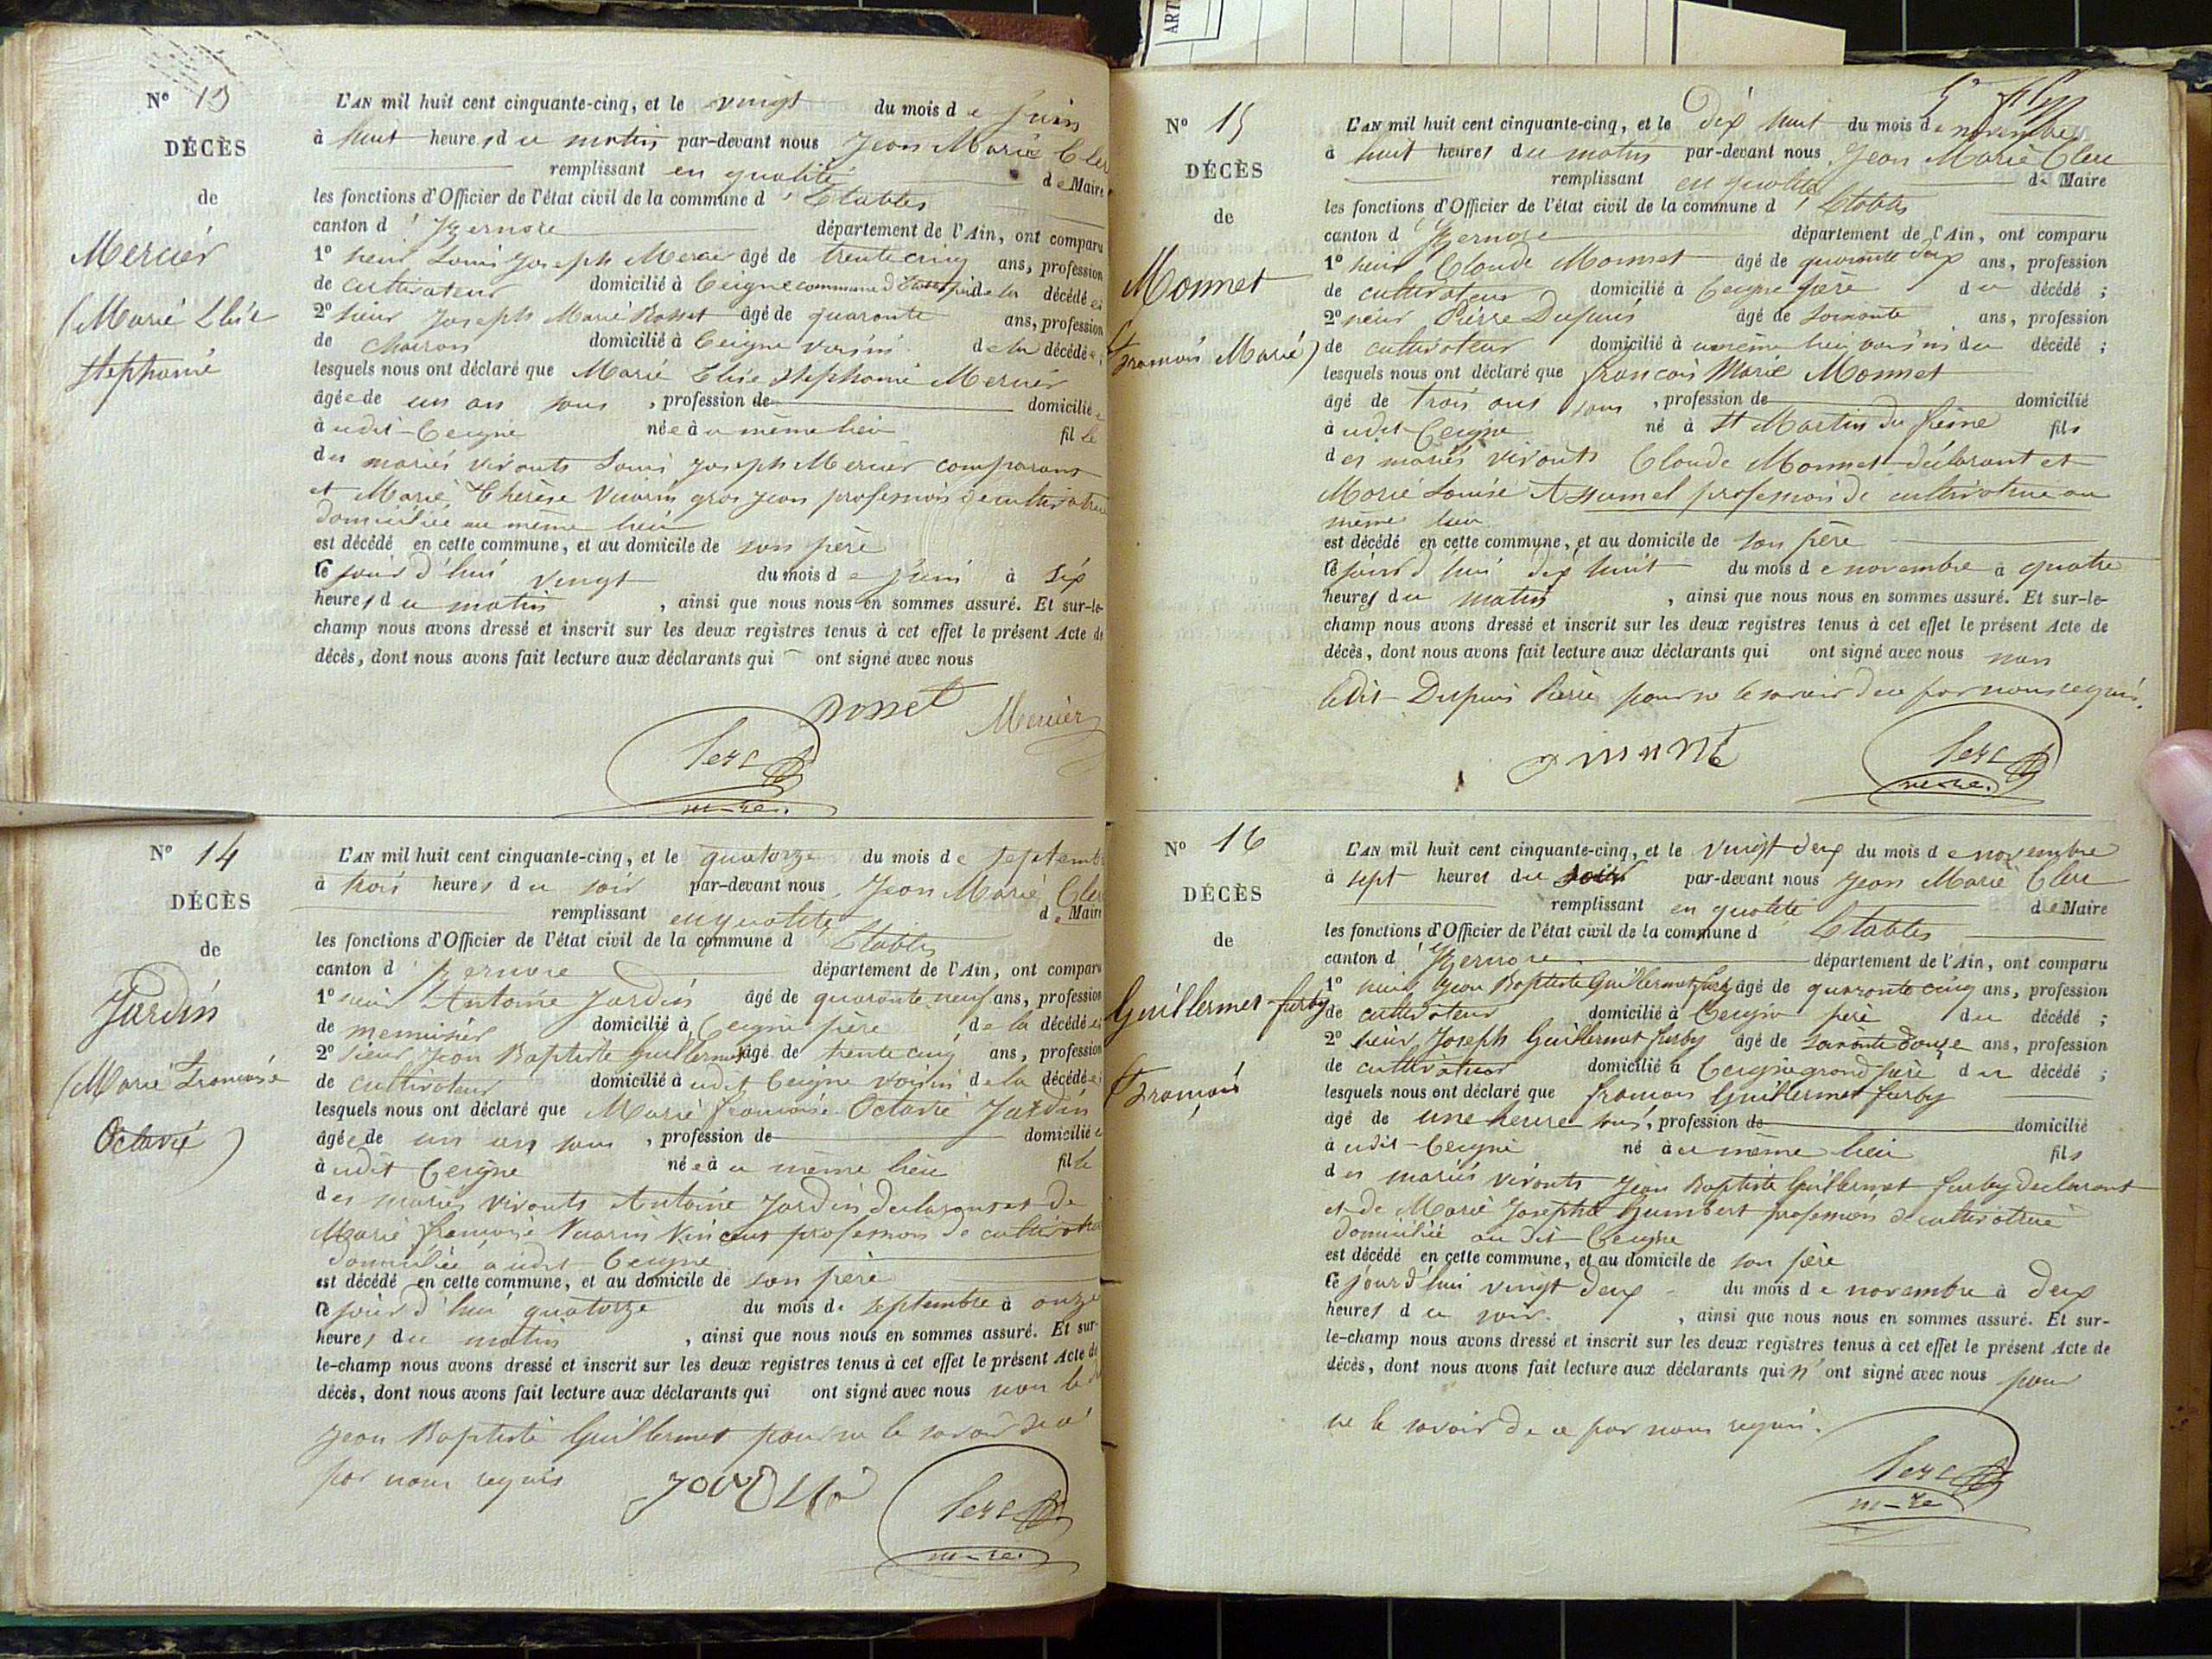 N° 13
DÉCÈS
de
Mercier
(Marie Elise
Stéphanie
L'AN mil huit cent cinquante-cinq, et le vingt du mois de juin
à huit heures du matin par-devant nous Jean Marie Clerc
remplissant en qualité de Maire
les fonctions d'Officier de l'état civil de la commune d'Etables
canton d'Izernore département de l'Ain, ont comparu
1° sieur Louis Joseph Mercier âgé de trente cinq ans, profession
de cultivateur domicilié à Ceigne commune d'Etables père de la décédée
2° sieur Joseph Marie Bosset âgé de quarante ans, profession
de domicilié à Ceigne voisin de la décédée;
lesquels nous ont déclaré que Marie Elise Stephanie Mercier
âgée de un an sans, profession de domiciliée
à udit Ceigne née à u même lieu fille
des mariés vivants Louis Joseph Mercier comparant
et Marie Thérèse Vuarin gros Jean profession de cultivatrice
domiciliée au même lieu
est décédé en cette commune, et au domicile de son père
ce jourd'hui vingt du mois de juin à six
heures du matin, ainsi que nous nous en sommes assuré. Et sur-le-
champ nous avons dressé et inscrit sur les deux registres tenus à cet effet le présent Acte de
décès, dont nous avons fait lecture aux déclarants qui ont signé avec nous
Mercier
Clerc
m-re.
N° 14
DÉCÈS
de
Jardin
(Marie Francoise
Octavie)
L'AN mil huit cent cinquante-cinq, et le quatorze du mois de septembre
à trois heures du soir par-devant nous Jean Marie Clerc
remplissant en qualité de Maire
les fonctions d'Officier de l'état civil de la commune d Etables
canton d'Izernore département de l'Ain, ont comparu
1° sieur Antoine Jardin âgé de quarante neuf ans, profession
de menuisier domicilié à Ceigne père de la décédée
2° sieur Jean Baptiste Guillermet âgé de trente cinq ans, profession
de cultivateur domicilié à udit Ceigne voisin de la décédée
lesquels nous ont déclaré que Marie françoise Octavie Jardin
âgée de un an sans, profession de domiciliée
à udit Ceigne née à u même lieu fille
des mariés vivants Antoine Jardin déclarant et de
Marie françoise Vuarin Vincent profession de cultivatrice
domiciliée à udit Ceigne
est décédé en cette commune, et au domicile de son père
ce jourd'hui quatorze du mois de septembre à onze
heures du matin, ainsi que nous nous en sommes assuré. Et sur-
le-champ nous avons dressé et inscrit sur les deux registres tenus à cet effet le présent Acte de
décès, dont nous avons fait lecture aux déclarants qui ont signé avec nous non le
Jean Baptiste Guillermet pour ne le savoir de ce
par nous requis
Clerc
m-re.
N° 15
DÉCÈS
de
Monnet
(francois Marie)
L'AN mil huit cent cinquante-cinq, et le Dix huit du mois de novembre
à huit heures du matin par-devant nous Jean Marie Clerc
remplissant en qualité de Maire
les fonctions d'Officier de l'état civil de la commune d'Etables
canton d'Izernore département de l'Ain, ont comparu
1° sieur Claude Monnet âgé de quarante deux ans, profession
de cultivateur domicilié à Ceigne père du décédé;
2° sieur Pierre Dupuis âgé de soixante ans, profession
de cultivateur domicilié à u même lieu voisin du décédé;
lesquels nous ont déclaré que françois Marie Monnet
âgé de trois ans sans, profession de domicilié
à udit Ceigne né à St Martin du frêne fils
des mariés vivants Claude Monnet déclarant et
Marie Louise Assumel profession de cultivatrice au
même lieu
est décédé en cette commune, et au domicile de son père
ce jourd'hui dix huit du mois de novembre à quatre
heures du matin, ainsi que nous nous en sommes assuré. Et sur-le-
champ nous avons dressé et inscrit sur les deux registres tenus à cet effet le présent Acte de
décès, dont nous avons fait lecture aux déclarants qui ont signé avec nous non
ledit Dupuis Pierre pour ne le savoir de ce par nous requis.
Clerc
m-re.
N° 16
DÉCÈS
de
Guillermet furby
(françois
L'AN mil huit cent cinquante-cinq, et le vingt deux du mois de novembre
à sept heures du soir par-devant nous Jean Marie Clerc
remplissant en qualité de Maire
les fonctions d'Officier de l'état civil de la commune d'Etables
canton d'Izernore département de l'Ain, ont comparu
1° sieur Jean Baptiste Guillermet furby âgé de quarante cinq ans, profession
de cultivateur domicilié à Ceigne père du décédé;
2° sieur Joseph Guillermet furby âgé de soixante douze ans, profession
de cultivateur domicilié à Ceigne grand père du décédé;
lesquels nous ont déclaré que françois Guillermet furby
âgé de une heure sans, profession de domicilié
à udit Ceigne né à u même lieu fils
des mariés vivants Jean Baptiste Guillermet furby déclarant
et de Marie Josephte humbert profession de cultivatrice
domiciliée au dit Ceigne
est décédé en cette commune, et au domicile de son père
ce jourd'hui vingt deux du mois de novembre à deux
heures du soir, ainsi que nous nous en sommes assuré. Et sur-
le-champ nous avons dressé et inscrit sur les deux registres tenus à cet effet le présent Acte de
décès, dont nous avons fait lecture aux déclarants qui n'ont signé avec nous pour
ne le savoir de ce par nous requis.
Clerc
m-re